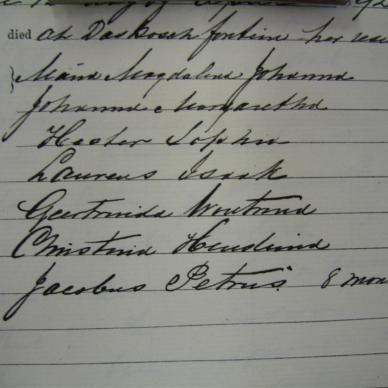 died at Dasbosch fontein her
Maria Magdalena Johanna
Johanna Margaretha
Hester Sophia
Laurens Isaak
Geertruida Woutrina
Christina Hendrina
Jacobus Petrus 8